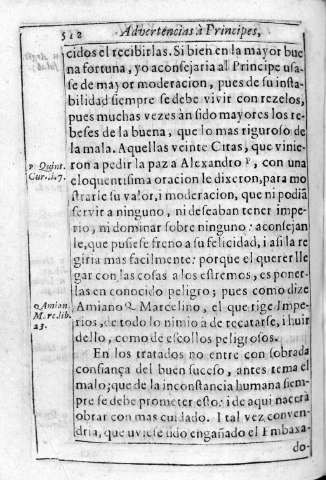 512 Advertencias à Principes,
cidos el recibirlas. Si bien en la mayor bue
na fortuna, yo aconsejaria al Principe usa-
se de mayor moderacion, pues de su insta-
bilidad siempre se debe vivir con rezelos,
pues muchas vezes àn sido mayores los re-
beses de la buena, que lo mas riguroso de
la mala. Aquellas veinte Citas, que vinie-
p Quint.
Cur. li. 7.
ron a pedir la paz a Alexandro P, con una
eloquentissima oracion le dixeron, para mo
strarle su valor, i moderacion, que ni podiã
servir a ninguno, ni deseaban tener impe-
rio, ni dominar sobre ninguno: aconsejan
le, que pusiese freno a su felicidad, i asi la re
giria mas facilmente: porque el querer lle
gar con las cosas a los estremos, es poner-
las en conocido peligro; pues como dize
q Amian.
M. re. lib.
23.
Amiano Q Marcelino, el que rige Impe-
rios, de todo lo nimio a de recatarse, i huir
dello, como de escollos peligrosos.
En los tratados no entre con sobrada
confiança del buen suceso, antes tema el
malo; que de la inconstancia humana siem-
pre se debe prometer esto: i de aqui nacerá
obrar con mas cuidado. I tal vez conven-
dria, que uviese sido engañado el Embaxa-
do-